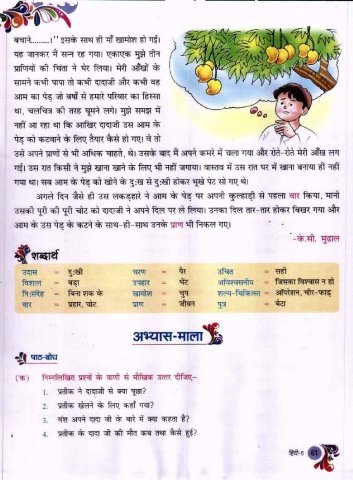 बचाने..........।" इसके साथ ही माँ खामोश हो गई।
यह जानकर मैं सन्न रह गया। एकाएक मुझे तीन
प्राणियों की चिंता ने घेर लिया। मेरी आँखों के
सामने कभी पापा तो कभी दादाजी और कभी वह
आम का पेड़ जो वर्षों से हमारे परिवार का हिस्सा
था, चलचित्र की तरह घूमने लगे। मुझे समझ में
नहीं आ रहा था कि आखिर दादाजी उस आम के
पेड़ को कटवाने के लिए तैयार कैसे हो गए। वे तो
उसे अपने प्राणों से भी अधिक चाहते, थे। उसके बाद मैं अपने कमरे में चला गया और रोते-रोते मेरी आँख लग
गई। उस रात किसी ने मुझे खाना खाने के लिए भी नहीं जगाया। वास्तव में उस रात घर में खाना बनाया ही नहीं
गया था। सब आम के पेड़ को खोने के दुःख से दुःखी होकर भूखे पेट सो गए थे।
अगले दिन जैसे ही उस लकड़हारे ने आम के पेड़ पर अपनी कुल्हाड़ी से पहला वार किया, मानो
उसकी पूरी की पूरी चोट को दादाजी ने अपने दिल पर ले लिया। उनका दिल तार-तार होकर बिखर गया और
आम के उस पेड़ के कटने के साथ-ही-साथ उनके प्राण भी निकल गए।
-के.सी. मुद्गल
शब्दार्थ
उदास = दुःखी चरण = पैर उचित = सही
विशाल = बड़ा उपहार = भेंट अविश्वसनीय = जिसका विश्वास न हो
निःसंदेह = बिना शक के खामोश = चुप शल्य-चिकित्सा = ऑपरेशन, चीर-फाड़
वार = प्रहार, चोट प्राण = जीवन पुत्र = बेटा
अभ्यास-माला
पाठ-बोध
(क) निम्नलिखित प्रश्नों के वाणी से मौखिक उत्तर दीजिए-
1. प्रतीक ने दादाजी से क्या पूछा?
2. प्रतीक खेलने के लिए कहाँ गया?
3. वंश अपने दादा जी के बारे में क्या कहता है?
4. प्रतीक के दादा जी की मौत कब तथा कैसे हुई?
हिंदी-5 61